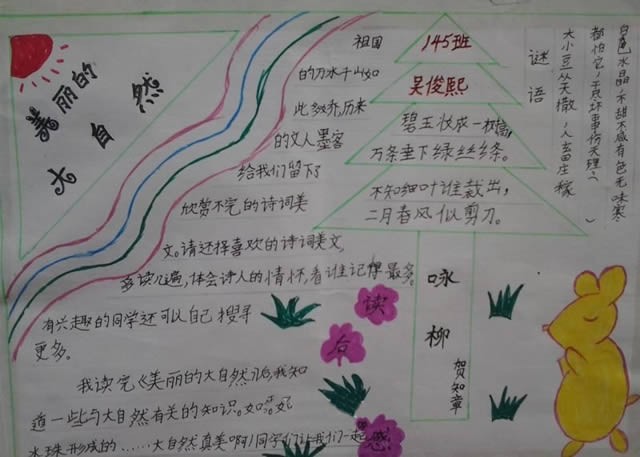 美丽的
大自然
祖国
的万水千山如
此多娇,历来
的文人墨客
给我们留下了
欣赏不完的诗词美
文。请选择喜欢的诗词美文
多读几遍,体会诗人的情怀,看谁记得最多。
有兴趣的同学还可以自己搜寻
更多。
145班
吴俊熙
碧玉妆成一树高,
万条垂下绿丝绦。
不知细叶谁裁出,
二月春风似剪刀。
咏柳
贺知章
谜语
白色水晶,不甜不咸有色无味家
都怕它,干坏事伤天理。
大小豆从天撒,人畜庄稼
读后感
我读完《美丽的大自然》后,我知
道一些与大自然有关的知识。如
水珠形成的……大自然真美啊!同学们让我们一起